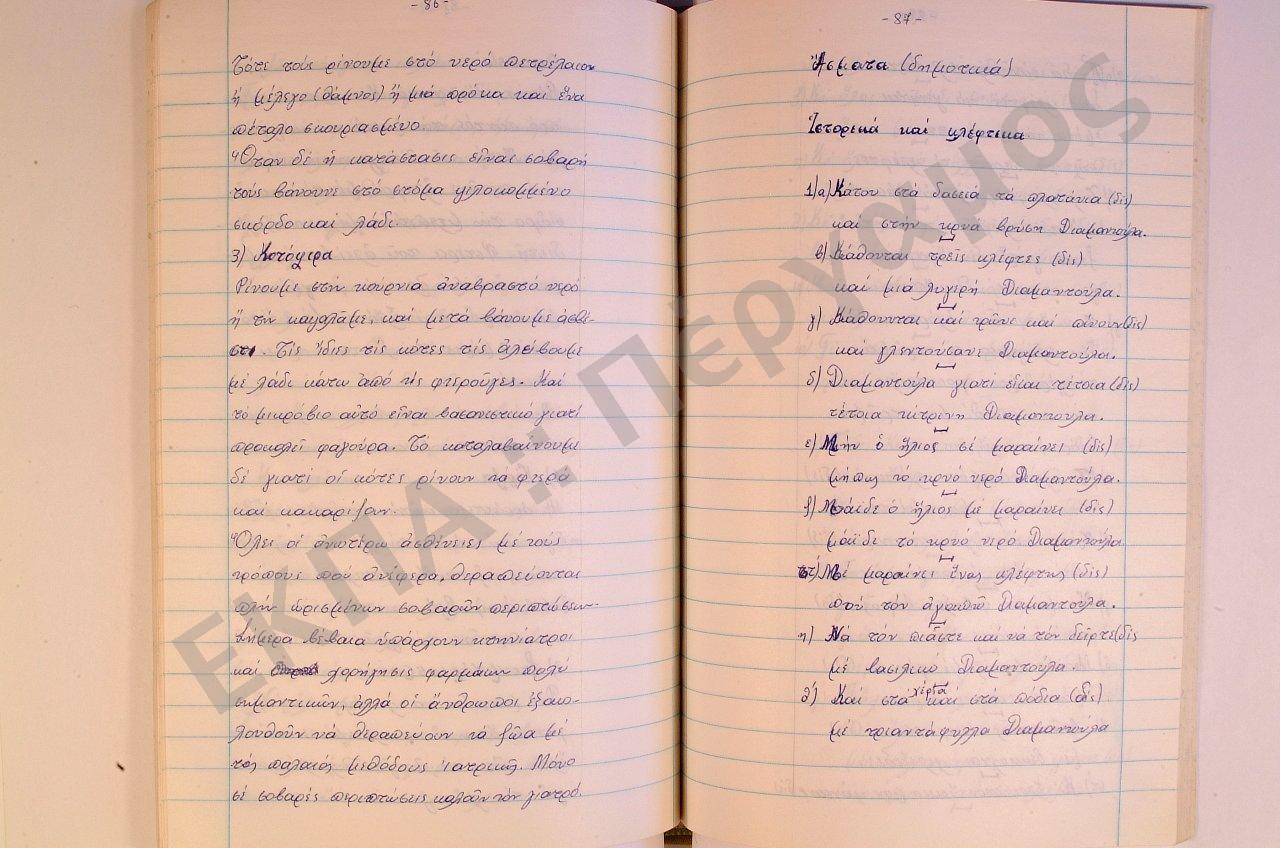 - 86 -
Τότε τούς ρίνουμε στό νερό πετρέλαιον
ἤ μέλεγο (θάμνος) ἤ μιά πρόκα καί ἕνα
πέταλο σκουριασμένο
Ὅταν δέ ἡ κατάστασις εἶναι σοβαρή
τούς βάνουνε στό στόμα ψιλοκομμένο
σκόρδο καί λάδι.
3) Κοτόψιρα
Ρίνουμε στήν κούρνια ἀναβραστό νερό
ἤ τήν καψαλᾶμε, καί μετά βάνουμε ἀσβέ-
στι. Τίς ἴδιες τίς κότες τίς ἀλείβουμε
μέ λάδι κάτω ἀπό τίς φτεροῦγες. Καί
τό μικρόβιο αὐτό εἶναι βασανιστικό γιατί
προκαλεῖ φαγούρα. Τό καταλαβαίνουμε
δέ γιατί οἱ κότες ρίνουν τά φτερά
καί κακαρίζουν.
Ὅλες οἱ ἀνωτέρω ἀσθένειες μέ τούς
τρόπους πού ἀνέφερα, θεραπεύονται
πλήν ὡρισμένων σοβαρῶν περιπτώσεων.
Σήμερα βέβαια ὑπάρχουν κτηνίατροι
καί χορήγησις φαρμάκων πολύ
σημαντικῶν, ἀλλά οἱ ἄνθρωποι ἐξακο-
λουθοῦν νά θεραπεύουν τά ζῶα μέ
τάς παλαιάς μεθόδους ἰατρικῆς. Μόνο
σέ σοβαρές περιπτώσεις καλοῦν τόν γιατρό.
- 87 -
Ἄσματα (δημοτικά)
Ἱστορικά καί κλέφτικα
1/α) Κάτου στά δασειά τά πλατάνια (δίς)
καί στήν κρυά βρύση Διαμαντούλα.
β) Κάθονται τρεῖς κλέφτες (δίς)
καί μιά λυγερή Διαμαντούλα.
γ) Κάθουνται καί τρῶνε καί πίνουν (δίς)
καί γλεντούσανε Διαμαντούλα.
δ) Διαμαντούλα γιατί εἶσαι τέτοια (δίς)
τέτοια κίτρινη Διαμαντούλα.
ε) Μήν ὁ ἥλιος σέ μαραίνει (δίς)
μήπως τό κρυό νερό Διαμαντούλα.
ζ) Μάιδε ὁ ἥλιος μέ μαραίνει (δίς)
μάϊδε τό κρυό νερό Διαμαντούλα
στ) Μέ μαραίνει ἕνας κλέφτης (δίς)
πού τόν ἀγαπῶ Διαμαντούλα.
η) Νά τόν πιάστε καί νά τόν δείρτε (δίς
μέ βασιλικό Διαμαντούλα.
θ) Καί στά χέρια καί στά πόδια (δίς)
μέ τριαντάφυλλα Διαμαντούλα
ΕΚΠΑ :: Πέργαμος